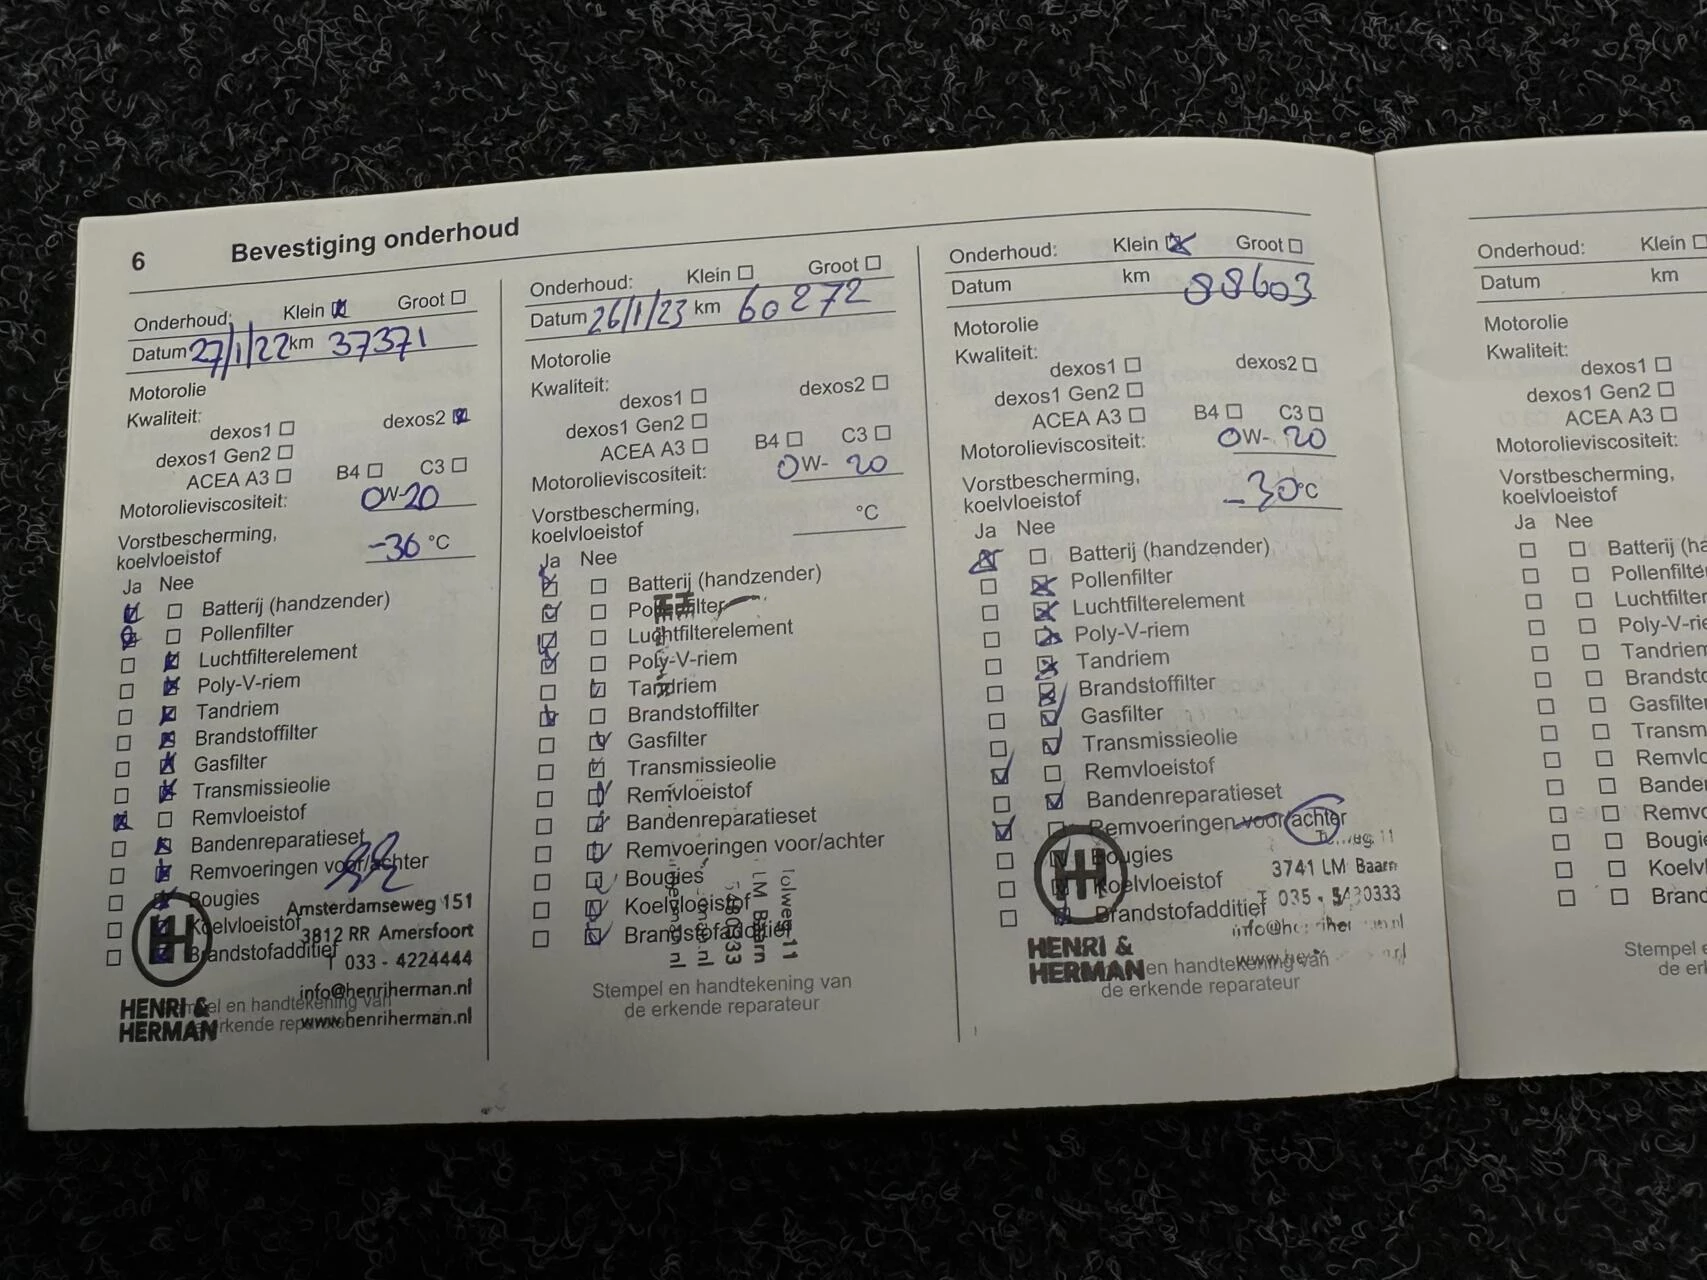 6 Bevestiging onderhoud
Onderhoud: Klein Groot
Datum 27/1/22 km 37371
Motorolie
Kwaliteit:
dexos1 dexos2
dexos1 Gen2
ACEA A3 B4 C3
Motorolieviscositeit: 0W-20
Vorstbescherming,
koelvloeistof -36 °C
Ja Nee
Batterij (handzender)
Pollenfilter
Luchtfilterelement
Poly-V-riem
Tandriem
Brandstoffilter
Gasfilter
Transmissieolie
Remvloeistof
Bandenreparatieset
Remvoeringen voor/achter
Bougies
Koelvloeistof
Brandstofadditief
Amsterdamseweg 151
3812 RR Amersfoort
T 033 - 4224444
info@henriherman.nl
www.henriherman.nl
HENRI &
HERMAN
Stempel en handtekening van
de erkende reparateur
Onderhoud: Klein Groot
Datum 26/1/23 km 60272
Motorolie
Kwaliteit:
dexos1 dexos2
dexos1 Gen2
ACEA A3 B4 C3
Motorolieviscositeit: 0W-20
Vorstbescherming,
koelvloeistof °C
Ja Nee
Batterij (handzender)
Pollenfilter
Luchtfilterelement
Poly-V-riem
Tandriem
Brandstoffilter
Gasfilter
Transmissieolie
Remvloeistof
Bandenreparatieset
Remvoeringen voor/achter
Bougies
Koelvloeistof
Brandstofadditief
Tolweg 11
LM Baarn
Stempel en handtekening van
de erkende reparateur
Onderhoud: Klein Groot
Datum km 88603
Motorolie
Kwaliteit:
dexos1 dexos2
dexos1 Gen2
ACEA A3 B4 C3
Motorolieviscositeit: 0W-20
Vorstbescherming,
koelvloeistof -30 °C
Ja Nee
Batterij (handzender)
Pollenfilter
Luchtfilterelement
Poly-V-riem
Tandriem
Brandstoffilter
Gasfilter
Transmissieolie
Remvloeistof
Bandenreparatieset
Remvoeringen voor/achter
Bougies
Koelvloeistof
Brandstofadditief
3741 LM Baarn
T 035 - 5430333
HENRI &
HERMAN
en handtekening van
de erkende reparateur
Onderhoud: Klein
Datum km
Motorolie
Kwaliteit:
dexos1
dexos1 Gen2
ACEA A3
Motorolieviscositeit:
Vorstbescherming,
koelvloeistof
Ja Nee
Batterij (ha
Pollenfilte
Luchtfilter
Poly-V-rie
Tandriem
Brandsto
Gasfilter
Transm
Remvlo
Banden
Remvo
Bougie
Koelvl
Branc
Stempel e
de er